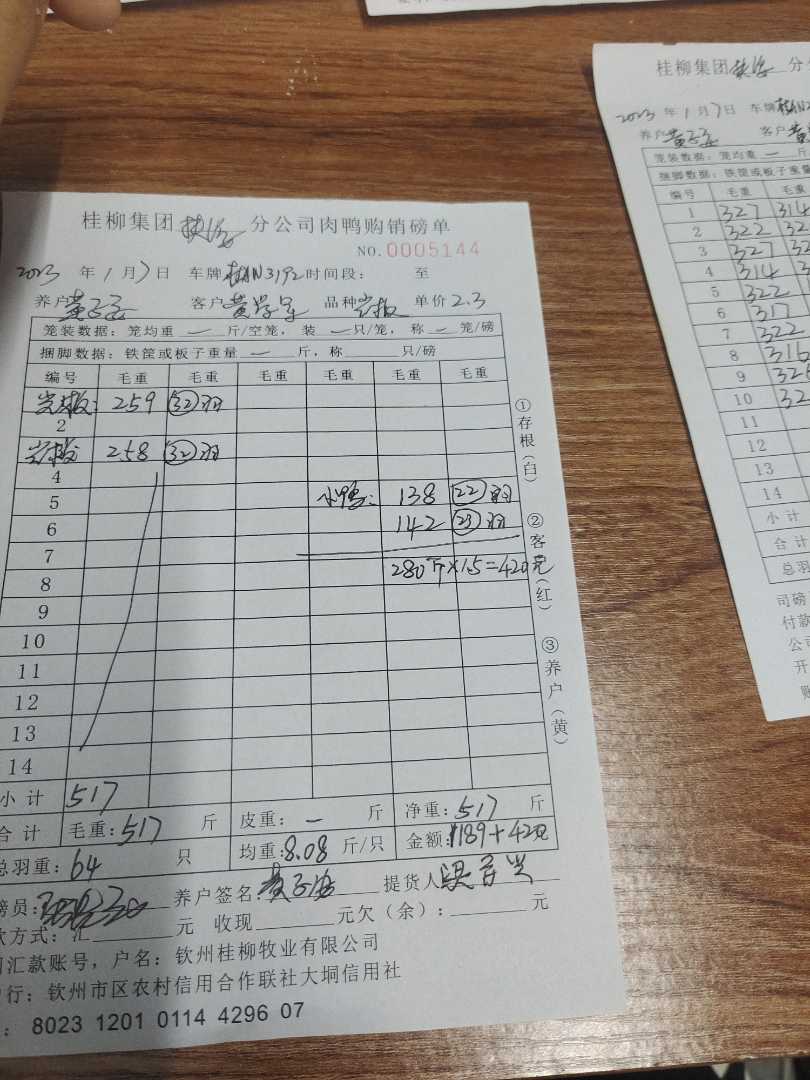 桂柳集团 分公司肉鸭购销磅单
NO.0005144
2023 年 1 月 7 日 车牌 桂AN3192 时间段: 至
养户 客户 品种 单价 2.3
笼装数据:笼均重 — 斤/空笼,装 — 只/笼,称 — 笼/磅
捆脚数据:铁筐或板子重量 — 斤,称 只/磅
编号 毛重 毛重 毛重 毛重 毛重 毛重
259 32羽
2
258 32羽
4
5 小鸭: 138 22羽
6 142 23羽
7
8 280斤×1.5=420元
9
10
11
12
13
14
小计 517
合计 毛重:517 斤 皮重: — 斤 净重:517 斤
总羽重:64 只 均重:8.08 斤/只 金额:1189+420元
磅员: 养户签名: 提货人
款方式:汇 元 收现 元欠(余): 元
司汇款账号,户名:钦州桂柳牧业有限公司
行:钦州市区农村信用合作联社大垌信用社
: 8023 1201 0114 4296 07
①存根(白) ②客(红) ③养户(黄)
桂柳集团 分
2023 年 1 月 7 日 车牌
养户 客户
笼装数据:笼均重 — 斤
捆脚数据:铁筐或板子重量
编号 毛重 毛重
1 327 314
2 322
3 327
4 314
5 322
6 317
7 322
8 315
9
10
11
12
13
14
小计
合计
总羽
司磅
付款
公司
开
账